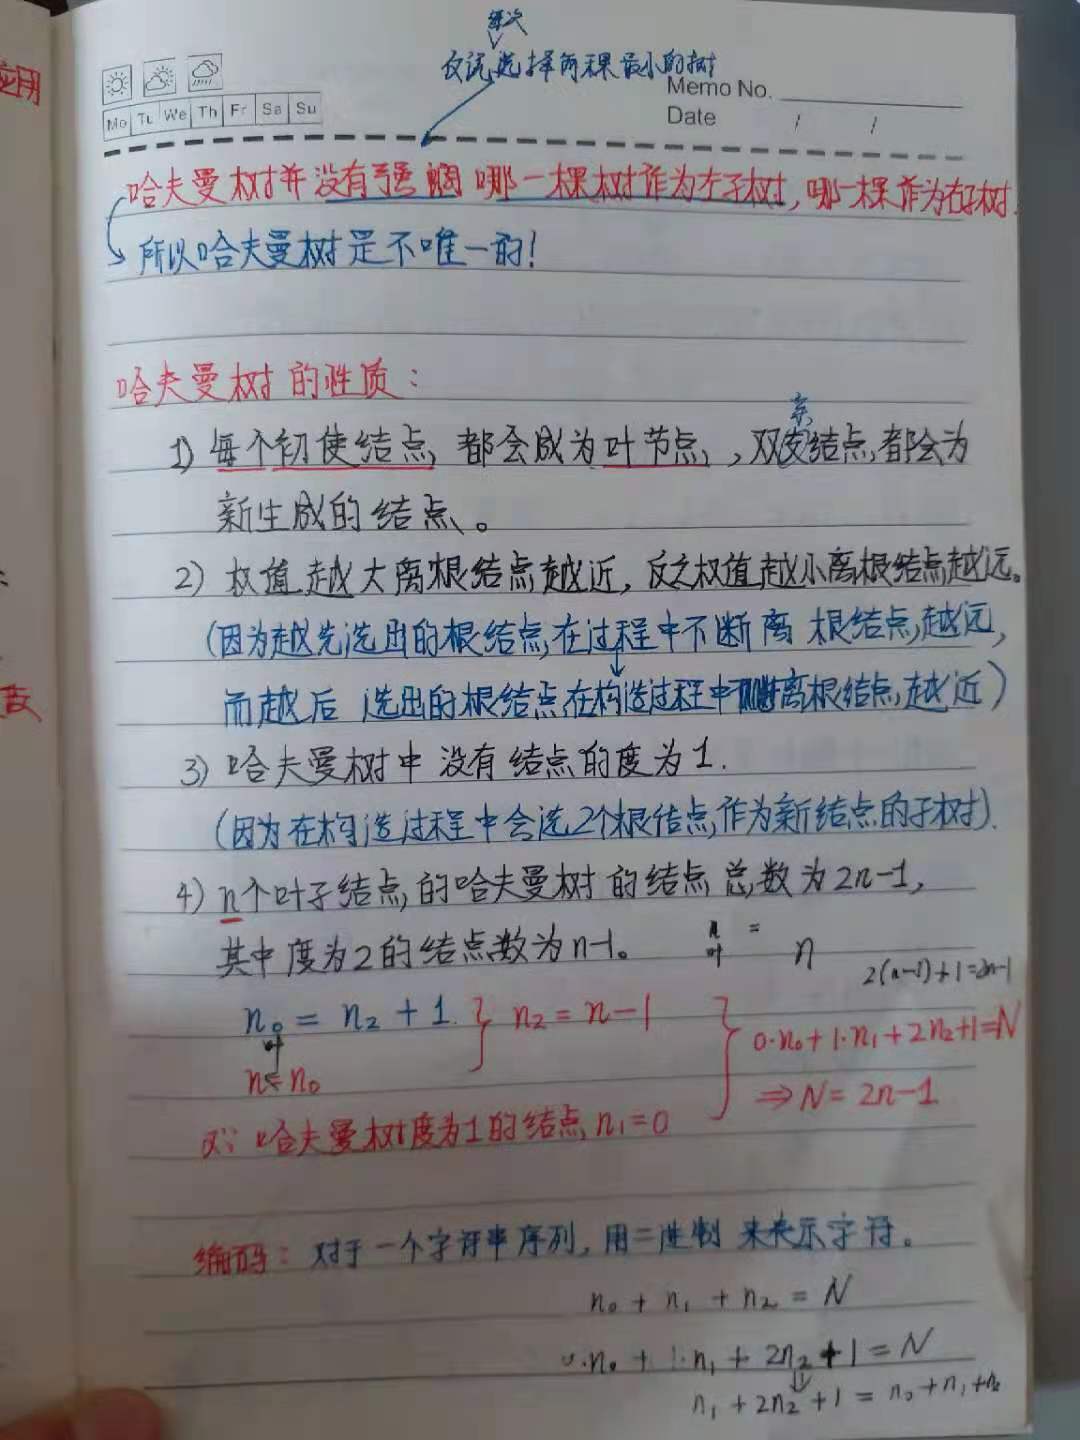 每次
仅说选择两棵最小的树
Memo No.
Mo Tu We Th Fr Sa Su
Date / /
哈夫曼树并没有强调哪一棵树作为左子树,哪一棵作为右子树.
所以哈夫曼树是不唯一的!
哈夫曼树的性质:
1) 每个初使结点,都会成为叶节点,,双支结点,都会为
亲
新生成的结点、。
2) 权值越大离根结点越近,反之权值越小离根结点越远。
(因为越先选出的根结点,在过程中不断离根结点,越远,
而越后选出的根结点在构造过程中离根结点,越近)
3) 哈夫曼树中没有结点的度为1.
(因为在构造过程中会选2个根结点,作为新结点的子树).
4) n个叶子结点,的哈夫曼树的结点总数为2n-1,
其中度为2的结点数为n-1。
n叶 = n
2(n-1)+1=2n-1
n₀ = n₂ + 1. } n₂ = n-1
叶
n = n₀
} 0·n₀+1·n₁+2n₂+1=N
⇒ N = 2n-1
又∵哈夫曼树度为1的结点,n₁=0
编码: 对于一个字符串序列,用二进制来表示字符。
n₀ + n₁ + n₂ = N
0·n₀ + 1·n₁ + 2n₂ + 1 = N
n₁ + 2n₂ + 1 = n₀ + n₁ + n₂
应用